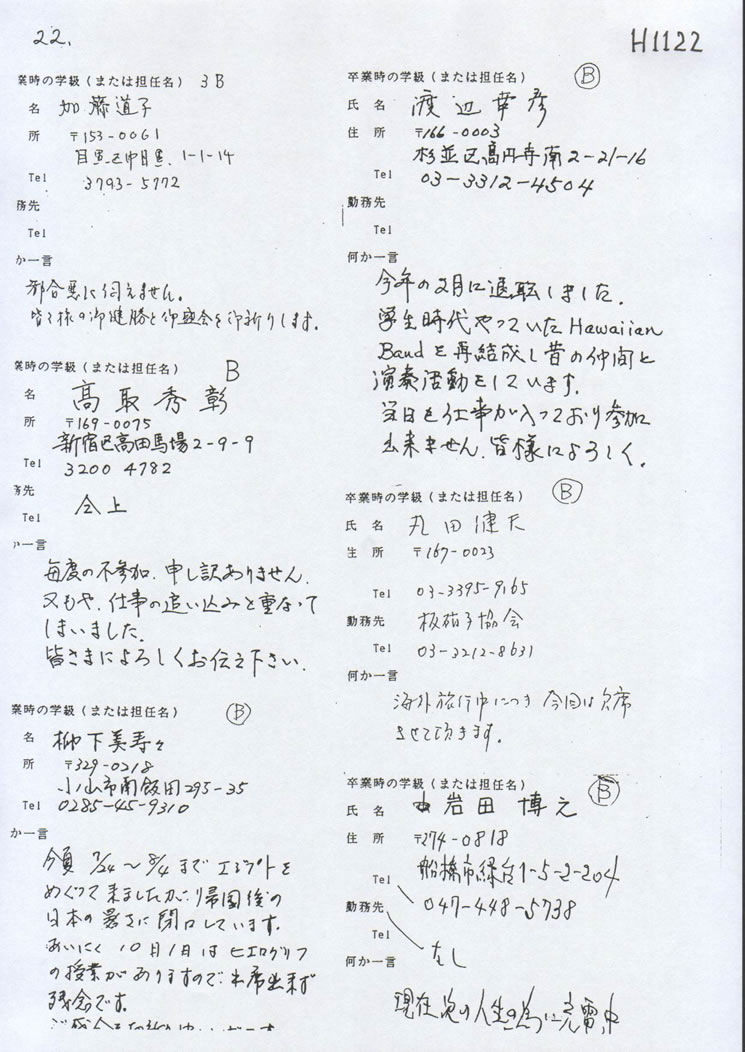 22.
H1122
業時の学級(または担任名) 3B
名 加藤道子
所 〒153-0061
目黒区中目黒、1-1-14
Tel 3793-5772
務先
Tel
か一言
都合悪く伺えません。
皆々様の御健勝と御盛会を御祈りします。
業時の学級(または担任名) B
名 高取秀彰
所 〒169-0075
新宿区高田馬場2-9-9
Tel 3200 4782
務先
Tel 仝上
か一言
毎度の不参加、申し訳ありません。
又もや、仕事の追い込みと重なって
しまいました。
皆さまによろしくお伝え下さい。
業時の学級(または担任名) B
名 柳下美寿々
所 〒329-0218
小山市南飯田295-35
Tel 0285-45-9310
か一言
今夏 7/24〜8/4 までエジプトを
めぐって来ましたが、帰国後の
日本の暑さに閉口しています。
あいにく10月1日はヒエログリフ
の授業がありますので出席出来ず
残念です。
卒業時の学級(または担任名) B
氏名 渡辺幸彦
住所 〒166-0003
杉並区高円寺南2-21-16
Tel 03-3312-4504
勤務先
Tel
何か一言
今年の2月に退職しました。
学生時代やっていたHawaiian
Bandを再結成し昔の仲間と
演奏活動をしています。
当日も仕事が入っており参加
出来ません。皆様によろしく。
卒業時の学級(または担任名) B
氏名 丸田健
住所 〒167-0023
Tel 03-3395-9165
勤務先 板硝子協会
Tel 03-3212-8631
何か一言
海外旅行中につき 今回は欠席
させて頂きます。
卒業時の学級(または担任名) B
氏名 岩田博之
住所 〒274-0818
船橋市緑台1-5-2-204
Tel 047-448-5738
勤務先
Tel なし
何か一言
現在次の人生の為に充電中